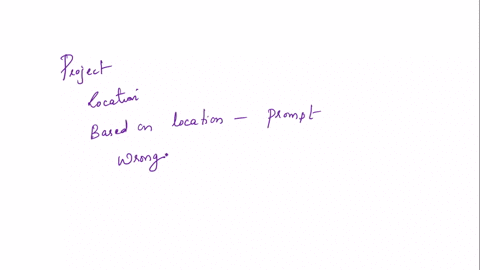 Project
Location
Based on location - prompt
Wrong